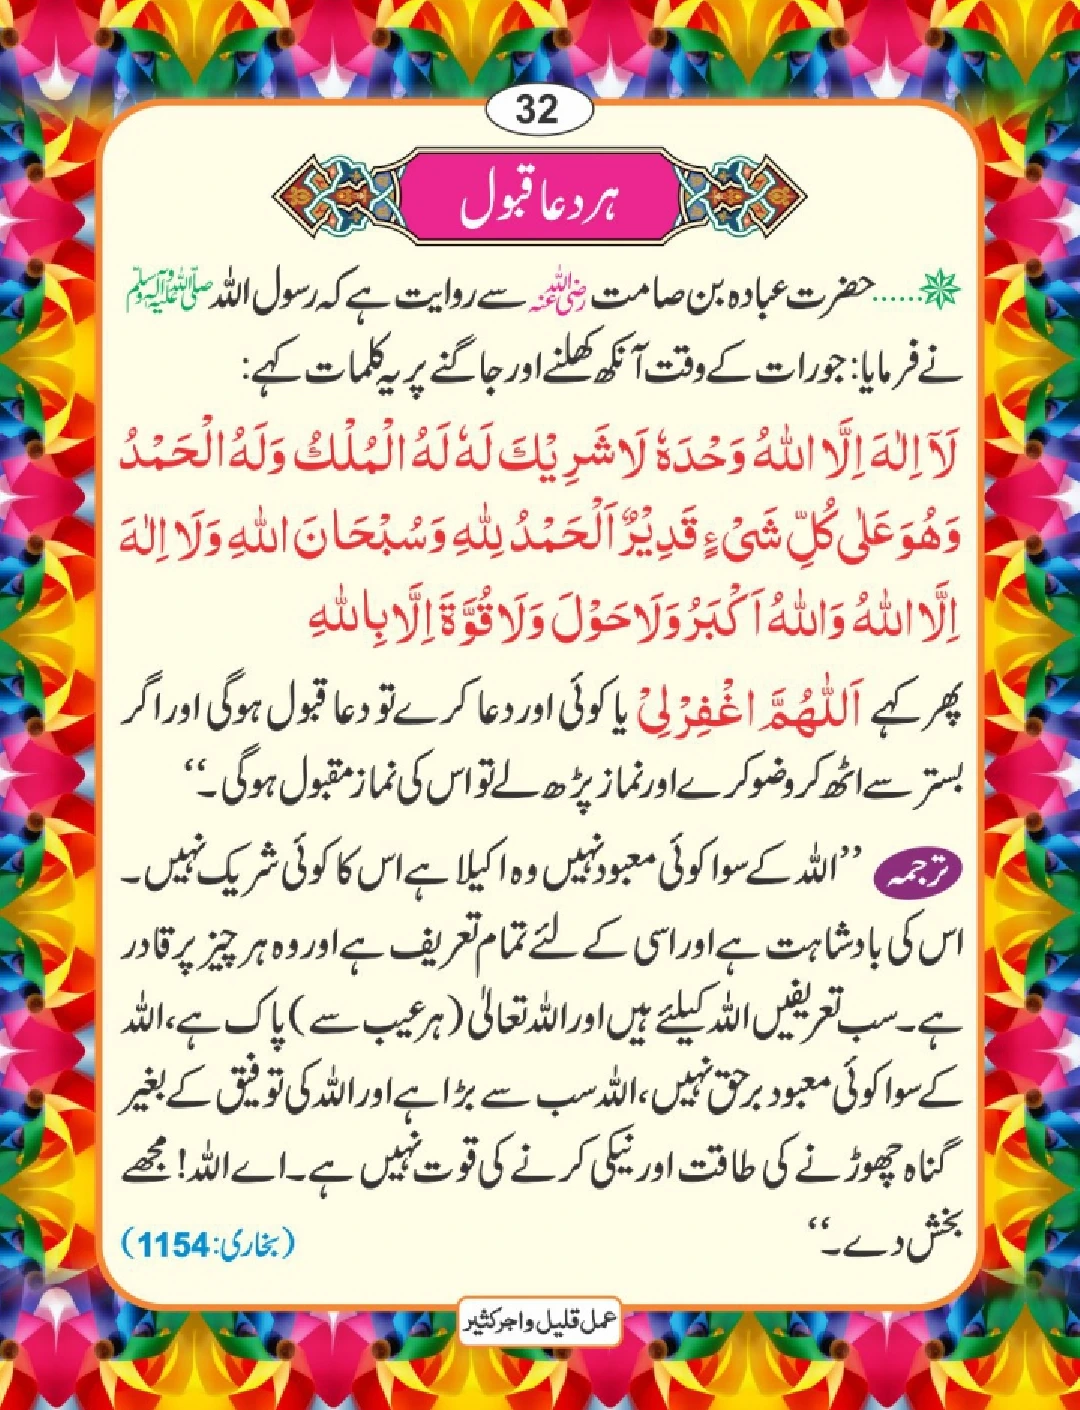 32
ہر دعا قبول
......حضرت عبادہ بن صامت رضی اللہ عنہ سے روایت ہے کہ رسول اللہ صلی اللہ علیہ وآلہ وسلم
نے فرمایا: جو رات کے وقت آنکھ کھلنے اور جاگنے پر یہ کلمات کہے:
لَآ اِلٰهَ اِلَّا اللّٰهُ وَحْدَهٗ لَا شَرِيْكَ لَهٗ لَهُ الْمُلْكُ وَلَهُ الْحَمْدُ
وَهُوَ عَلٰى كُلِّ شَیْءٍ قَدِيْرٌ اَلْحَمْدُ لِلّٰهِ وَسُبْحَانَ اللّٰهِ وَلَا اِلٰهَ
اِلَّا اللّٰهُ وَاللّٰهُ اَكْبَرُ وَلَا حَوْلَ وَلَا قُوَّةَ اِلَّا بِاللّٰهِ
پھر کہے اَللّٰهُمَّ اغْفِرْلِیْ یا کوئی اور دعا کرے تو دعا قبول ہوگی اور اگر
بستر سے اٹھ کر وضو کرے اور نماز پڑھ لے تو اس کی نماز مقبول ہوگی۔‘‘
ترجمہ ’’اللہ کے سوا کوئی معبود نہیں وہ اکیلا ہے اس کا کوئی شریک نہیں۔
اس کی بادشاہت ہے اور اسی کے لئے تمام تعریف ہے اور وہ ہر چیز پر قادر
ہے۔ سب تعریفیں اللہ کیلئے ہیں اور اللہ تعالیٰ (ہر عیب سے) پاک ہے، اللہ
کے سوا کوئی معبود برحق نہیں، اللہ سب سے بڑا ہے اور اللہ کی توفیق کے بغیر
گناہ چھوڑنے کی طاقت اور نیکی کرنے کی قوت نہیں ہے۔ اے اللہ! مجھے
بخش دے۔‘‘ (بخاری: 1154)
عمل قلیل و اجر کثیر